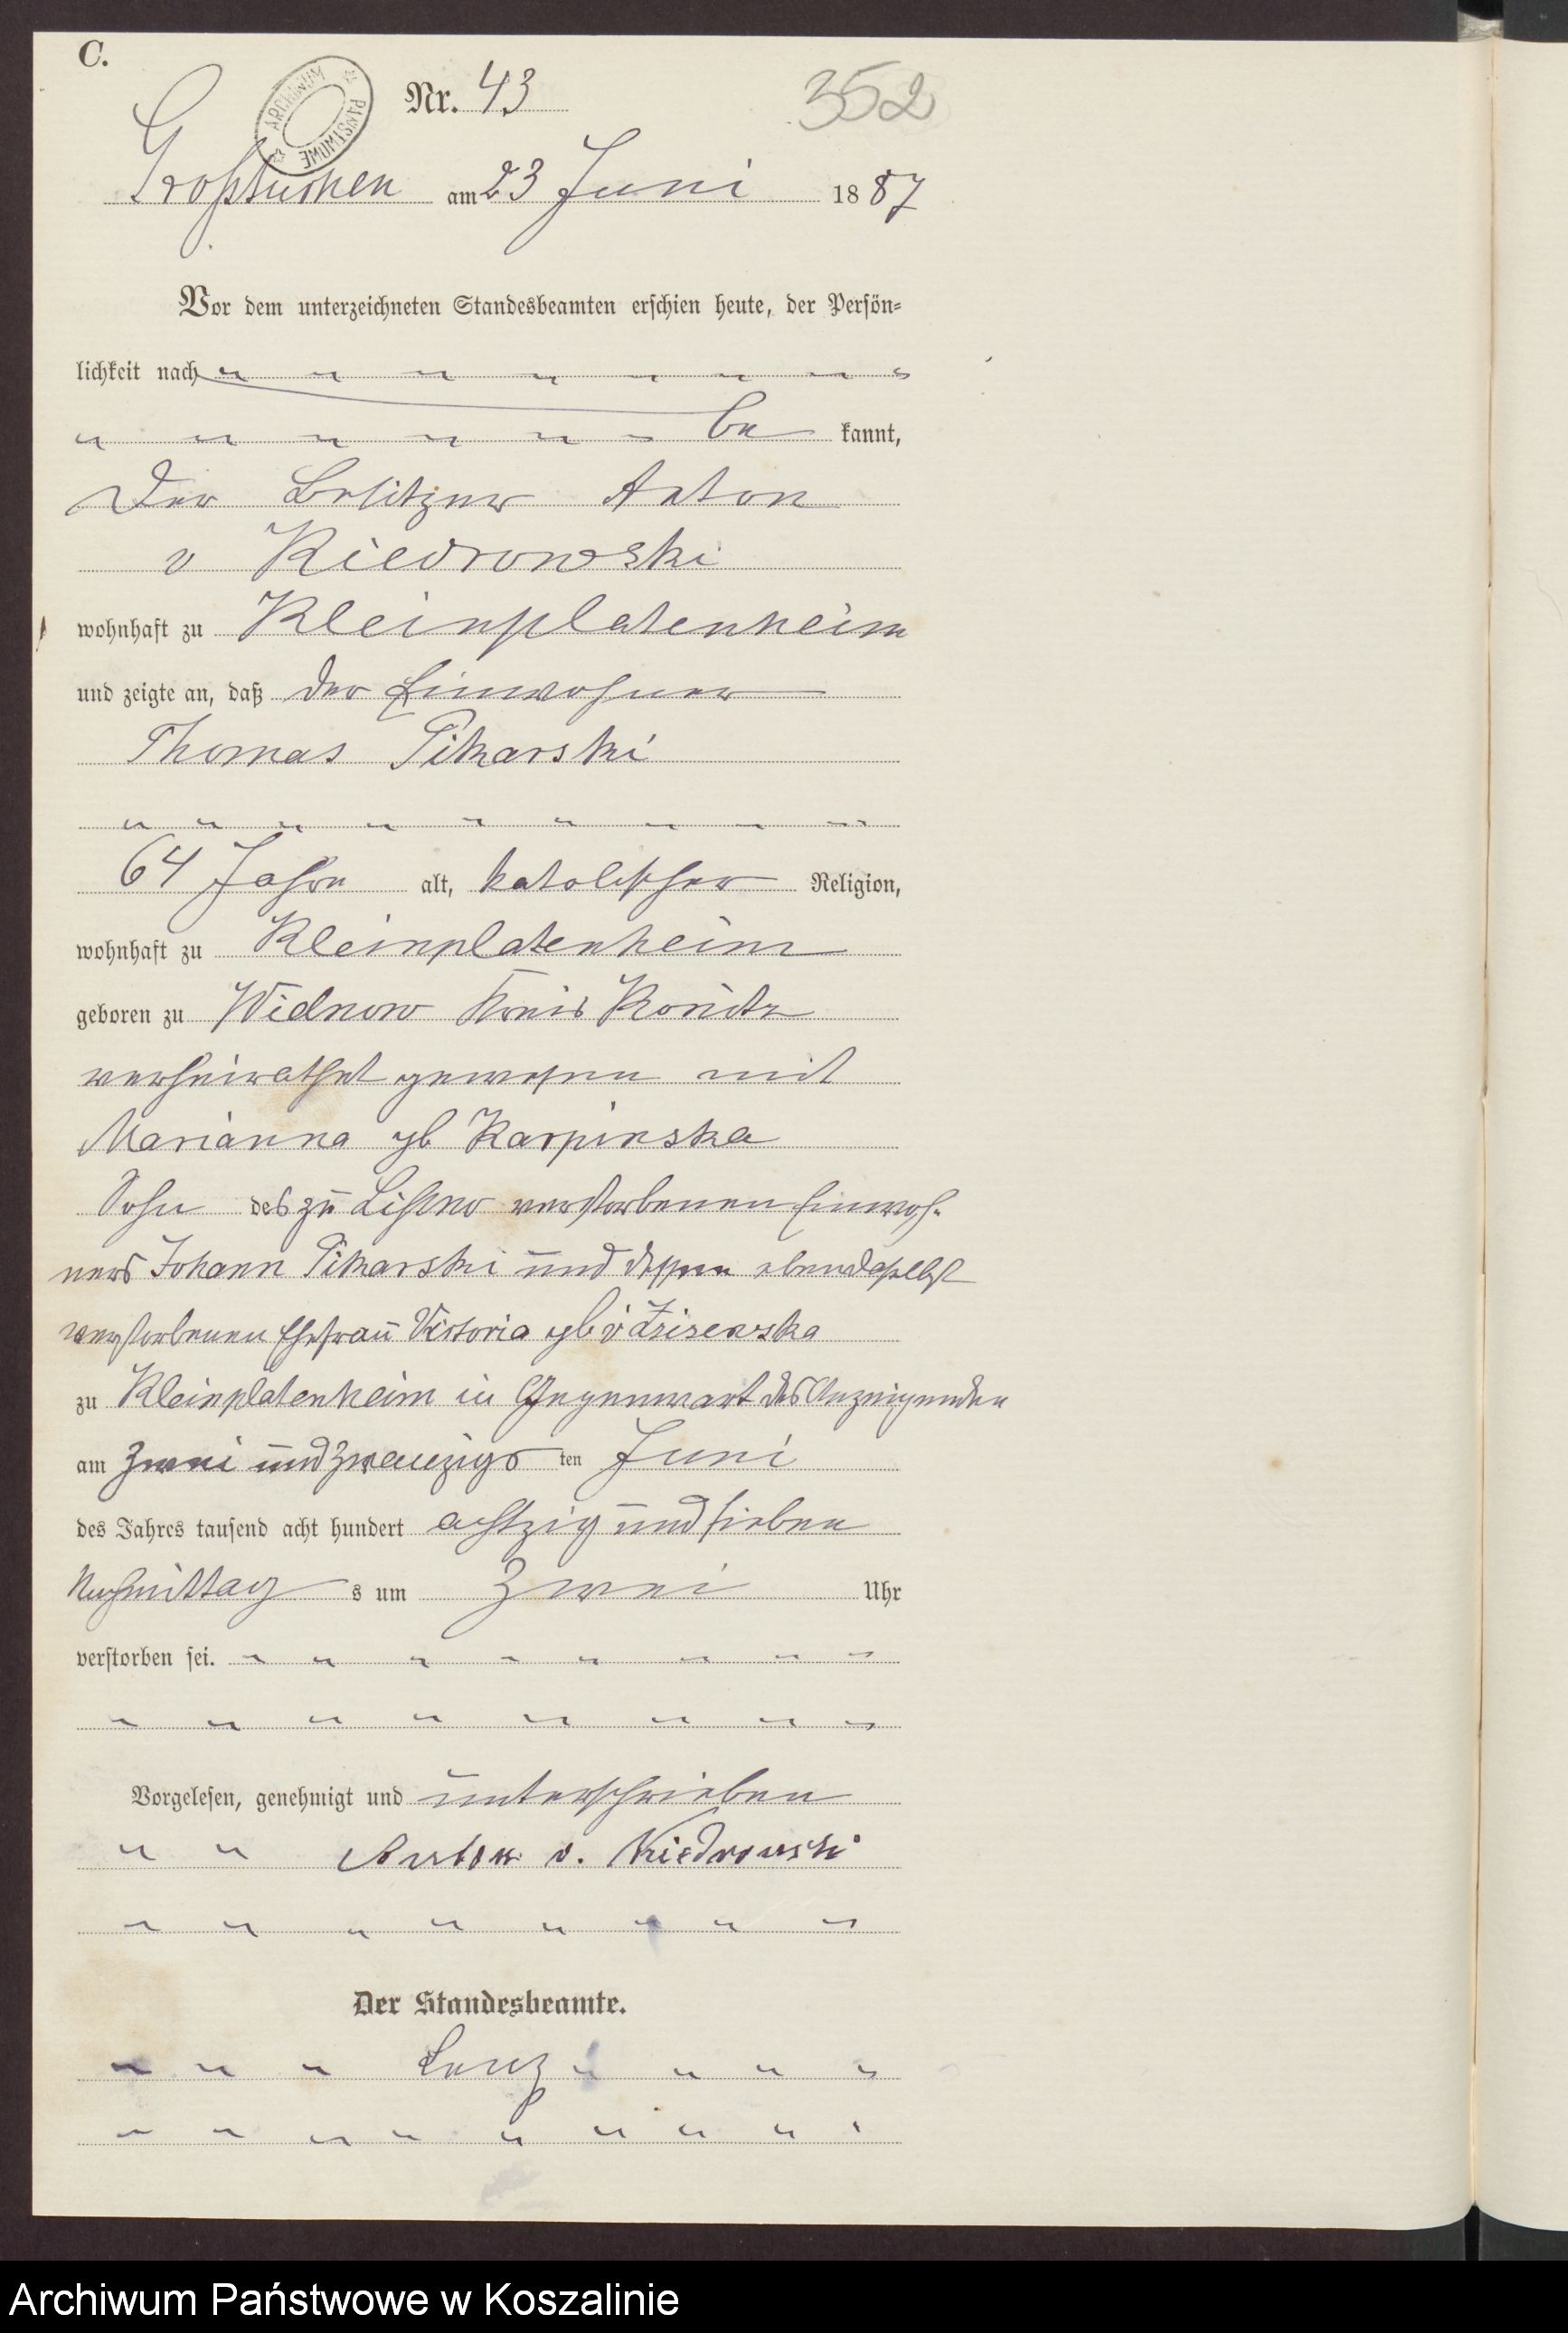 C.
ARCHIWUM PAŃSTWOWE
Nr. 43
352
Großtuchen am 23 Juni 1887
Vor dem unterzeichneten Standesbeamten erschien heute, der Persön=
lichkeit nach
be kannt,
Der Besitzer Anton
v Kiedrowski
wohnhaft zu Kleinplatenheim
und zeigte an, daß der Einwohner
Thomas Pikarski
64 Jahre alt, katolischer Religion,
wohnhaft zu Kleinplatenheim
geboren zu Widnow Kreis Konitz
verheirathet gewesen mit
Marianna gb Karpinska
Sohn des zu verstorbenen Einwoh-
ners Johann Pikarski und dessen ebendaselbst
verstorbenen Ehefrau Victoria gb v
zu Kleinplatenheim in Gegenwart des Anzeigenden
am zwei und zwanzigs ten Juni
des Jahres tausend acht hundert achtzig und sieben
Nachmittag s um Zwei Uhr
verstorben sei.
Vorgelesen, genehmigt und unterschrieben
Anton v. Kiedrowski
Der Standesbeamte.
Lenz
Archiwum Państwowe w Koszalinie